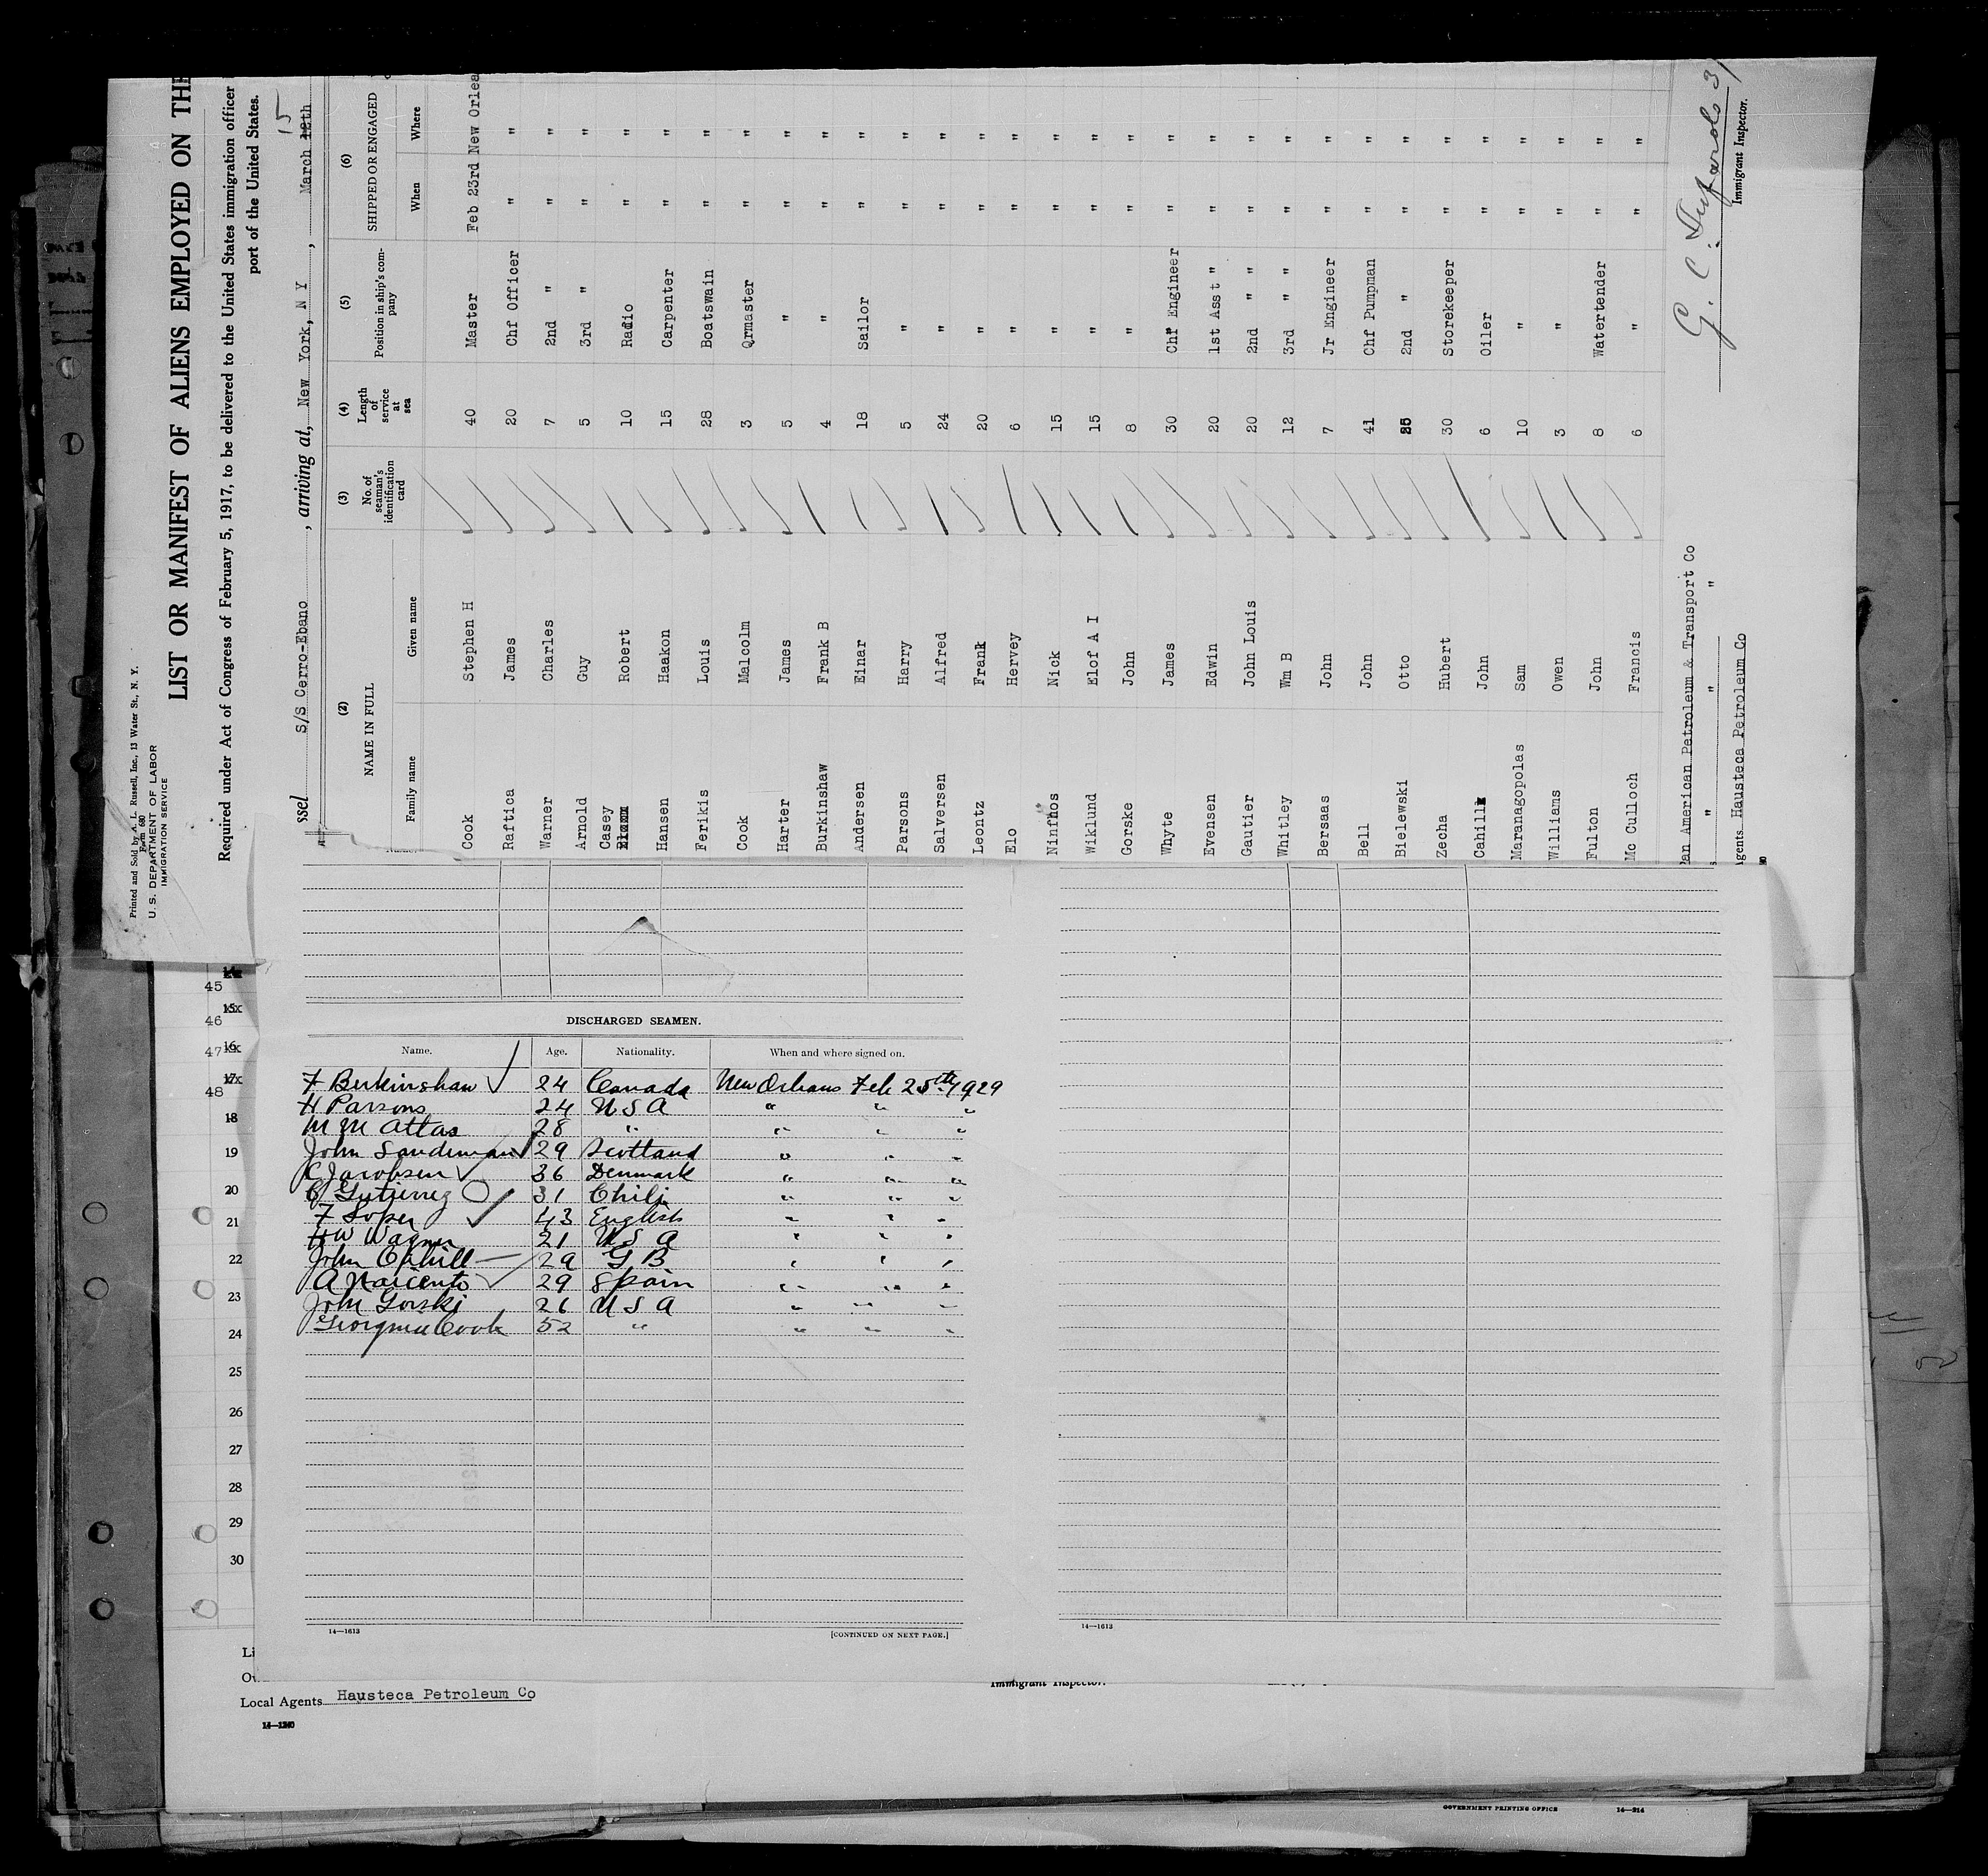 Printed and Sold by A. L. Russell, Inc., 13 Water St., N. Y.
Form 680
U. S. DEPARTMENT OF LABOR
IMMIGRATION SERVICE
LIST OR MANIFEST OF ALIENS EMPLOYED ON THE
Required under Act of Congress of February 5, 1917, to be delivered to the United States immigration officer
port of the United States.
ssel S/S Cerro-Ebano, arriving at, New York, N Y, March 12th 15
(2) NAME IN FULL (3) No. of seaman's identification card (4) Length of service at sea (5) Position in ship's company (6) SHIPPED OR ENGAGED
Family name Given name When Where
Cook Stephen H 40 Master Feb 23rd New Orlea
Raftica James 20 Chf Officer " "
Warner Charles 7 2nd " " "
Arnold Guy 5 3rd " " "
Casey Robert 10 Radio " "
Hansen Haakon 15 Carpenter " "
Ferikis Louis 28 Boatswain " "
Cook Malcolm 3 Qrmaster " "
Harter James 5 " " "
Burkinshaw Frank B 4 " " "
Andersen Einar 18 Sailor " "
Parsons Harry 5 " " "
Salversen Alfred 24 " " "
Leontz Frank 20 " " "
Elo Hervey 6 " " "
Ninfhos Nick 15 " " "
Wiklund Elof A I 15 " " "
Gorske John 8 " " "
Whyte James 30 Chf Engineer " "
Evensen Edwin 20 1st Asst " " "
Gautier John Louis 20 2nd " " " "
Whitley Wm B 12 3rd " " " "
Bersaas John 7 Jr Engineer " "
Bell John 41 Chf Pumpman " "
Bielewski Otto 2nd " " "
Zecha Hubert 30 Storekeeper " "
Cahill John 6 Oiler " "
Maranagopolas Sam 10 " " "
Williams Owen 3 " " "
Fulton John 8 Watertender " "
Mc Culloch Francis 6 " " "
Pan American Petroleum & Transport Co
" " "
Agents Hausteca Petroleum Co
G. C.
Immigrant Inspector.
45
15
46
16
47
17
48
18
19
20
21
22
23
24
25
26
27
28
29
30
DISCHARGED SEAMEN.
Name. Age. Nationality. When and where signed on.
F Burkinshaw 24 Canada New Orleans Feb 25th 1929
H Parsons 24 U S A " " "
M M Attas 28 " " " "
John Sandeman 29 Scotland " " "
C Jacobsen 36 Denmark " " "
C Gutierrez 31 Chili " " "
F Soper 43 English " " "
H W Wagner 21 U S A " " "
John Cahill 29 G B " " "
A Naicento 29 Spain " " "
John Gorski 26 U S A " " "
Cook 52 " " " "
14—1613
[CONTINUED ON NEXT PAGE.]
14—1613
Immigrant Inspector.
Local Agents Hausteca Petroleum Co
14—1240
GOVERNMENT PRINTING OFFICE 14—214